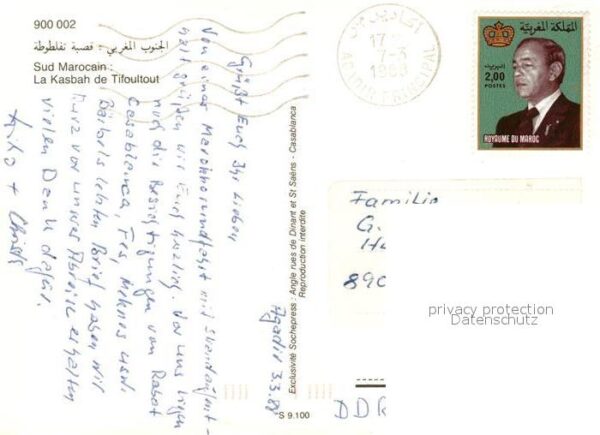 900 002
الجنوب المغربي : قصبة تفلطوطة
Sud Marocain :
La Kasbah de Tifoultout
Agadir 3.3.88
Grüßt Euch Ihr Lieben
Von einer Marokkorundfahrt mit Strandaufent-
halt grüßen wir Euch herzlich. Vor uns liegen
noch die Besichtigungen von Rabat
Casablanca, Fes, Meknes usw.
Bärbels letzten Brief haben wir
kurz vor unserer Abreise erhalten
vielen Dank dafür.
Exclusivité Sochepress : Angle rues de Dinant et St Saëns - Casablanca
Reproduction interdite
S 9.100
AGADIR PRINCIPAL
المملكة المغربية
2,00
POSTES
ROYAUME DU MAROC
Familie
G.
890
privacy protection
Datenschutz
DDR